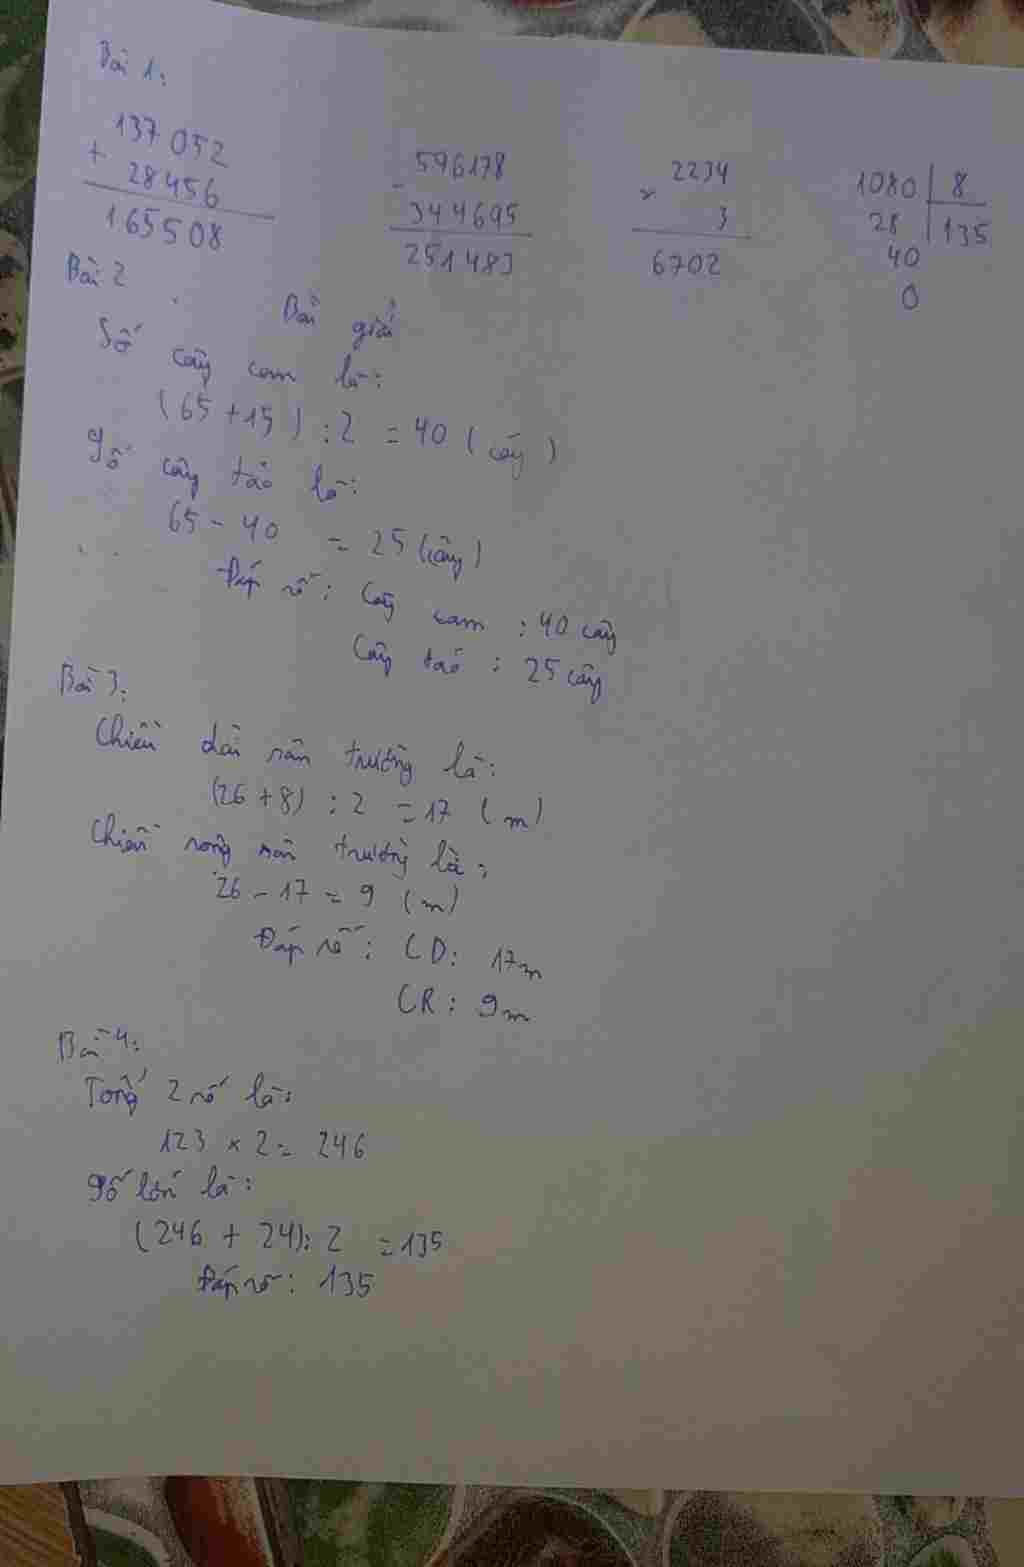 Bài 1:
137 052
+ 28456
165508
596178
-
344695
251483
2234
×
3
6702
1080 8
28 135
40
0
Bài 2
Bài giải
Số cây cam là:
(65 + 15) : 2 = 40 (cây)
Số cây táo là:
65 - 40 = 25 (cây)
Đáp số: Cây cam : 40 cây
Cây táo : 25 cây
Bài 3:
Chiều dài sân trường là:
(26 + 8) : 2 = 17 (m)
Chiều rộng sân trường là:
26 - 17 = 9 (m)
Đáp số: CD: 17m
CR: 9m
Bài 4:
Tổng 2 số là:
123 × 2 = 246
Số lớn là:
(246 + 24): 2 = 135
Đáp số: 135